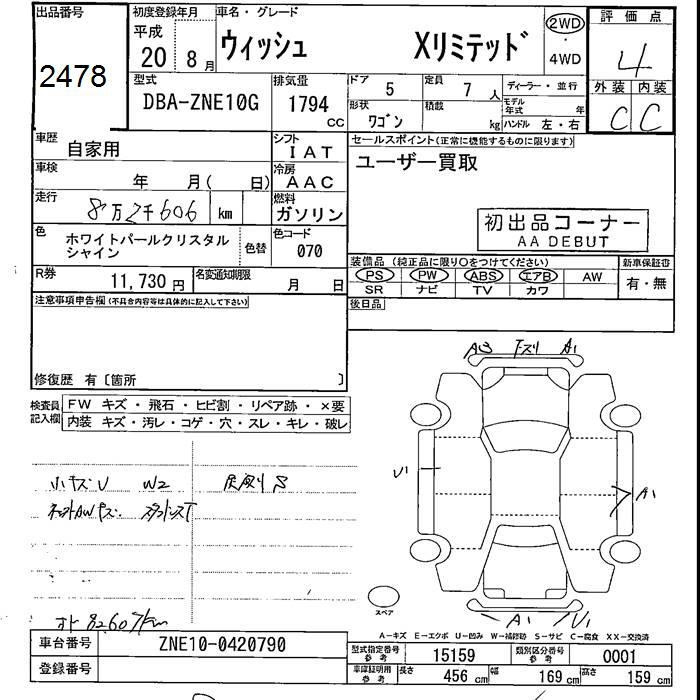 出品番号
2478
初度登録年月
平成
20 年 8 月
車名・グレード
ウィッシュ Xリミテッド
2WD
・
4WD
評価点
4
外装 内装
C C
型式
DBA-ZNE10G
排気量
1794 CC
ドア 5
定員 7 人
ディーラー・並行
形状 ワゴン
積載 kg
モデル年式 年
ハンドル 左・右
車歴 自家用
シフト IAT
車検 年 月( 日)
冷房 AAC
走行 8万2千606 km
燃料 ガソリン
色 ホワイトパールクリスタルシャイン
色替
色コード 070
R券 11,730 円
名変通知期限 月 日
セールスポイント(正常に機能するものに限ります)
ユーザー買取
初出品コーナー
AA DEBUT
装備品 (純正品に限り○をつけてください)
PS PW ABS エアB AW
SR ナビ TV カワ
新車保証書
有・無
後日品
注意事項申告欄(不具合内容等は具体的に記入して下さい)
修復歴 有〔箇所 〕
検査員記入欄
FW キズ・飛石・ヒビ割・リペア跡・×要
内装 キズ・汚レ・コゲ・穴・スレ・キレ・破レ
A3 下ズリ A1
小キズU W2
U1
A1
A1 U1
スペア
A―キズ E―エクボ U―凹み W―補修跡 S―サビ C―腐食 XX―交換済
車台番号 ZNE10-0420790
登録番号
型式指定番号 参考 15159
類別区分番号 参考 0001
車庫証明用 参考 長さ 456 cm 幅 169 cm 高さ 159 cm